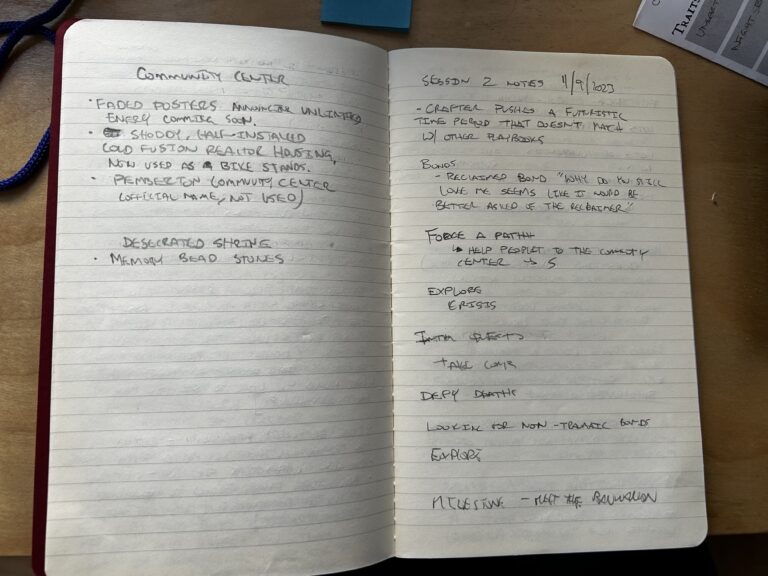 COMMUNITY CENTER
· FADED POSTERS ANNOUNCING UNLIMITED
ENERGY COMMING SOON.
· SHODDY, HALF-INSTALLED
COLD FUSION REACTOR HOUSING,
NOW USED AS A BIKE STANDS.
· PEMBERTON COMMUNITY CENTER
(OFFICIAL NAME, NOT USED)
DESECRATED SHRINE
· MEMORY BEAD STONES
SESSION 2 NOTES 11/9/2023
- CRAFTER PUSHES A FUTURISTIC
TIME PERIOD THAT DOESN'T MATCH
W/ OTHER PLAYBOOKS
BONDS
- RECLAIMED BOND "WHY DO YOU STILL
LOVE ME SEEMS LIKE IT WOULD BE
BETTER ASKED OF THE RECLAIMER"
FORGE A PATH
↳ HELP PEOPLE TO THE COMMUNITY
CENTER → 5
EXPLORE
CRISIS
TAKE
DEFY DEATH
LOOKING FOR NON-TRAUMATIC BONDS
EXPLORE
MILESTONE - MEET THE
TRAITS